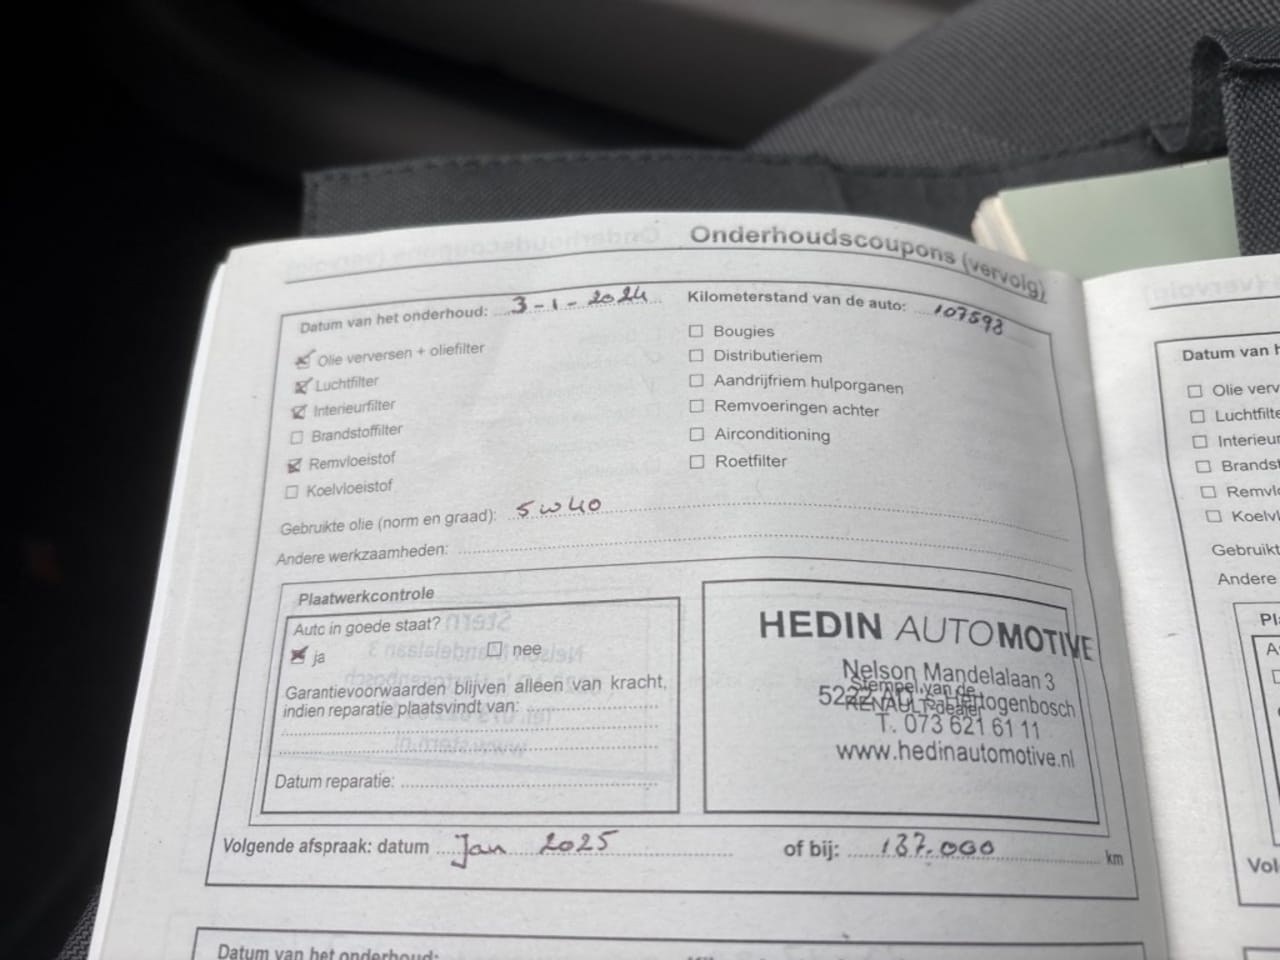 Onderhoudscoupons (vervolg)
Datum van het onderhoud: 3-1-2024 Kilometerstand van de auto: 107598
Olie verversen + oliefilter
Luchtfilter
Interieurfilter
Brandstoffilter
Remvloeistof
Koelvloeistof
Bougies
Distributieriem
Aandrijfriem hulporganen
Remvoeringen achter
Airconditioning
Roetfilter
Gebruikte olie (norm en graad): 5w40
Andere werkzaamheden:
Plaatwerkcontrole
Auto in goede staat?
ja nee
Garantievoorwaarden blijven alleen van kracht,
indien reparatie plaatsvindt van:
Datum reparatie:
HEDIN AUTOMOTIVE
Nelson Mandelalaan 3
Stempel van de
5222 's-Hertogenbosch
RENAULT-dealer
T. 073 621 61 11
www.hedinautomotive.nl
Volgende afspraak: datum Jan 2025 of bij: 137.000 km
Datum van het onderhoud:
Datum van h
Olie verv
Luchtfilte
Interieur
Brandst
Remvlo
Koelvl
Gebruikt
Andere
Pl
A
Vol